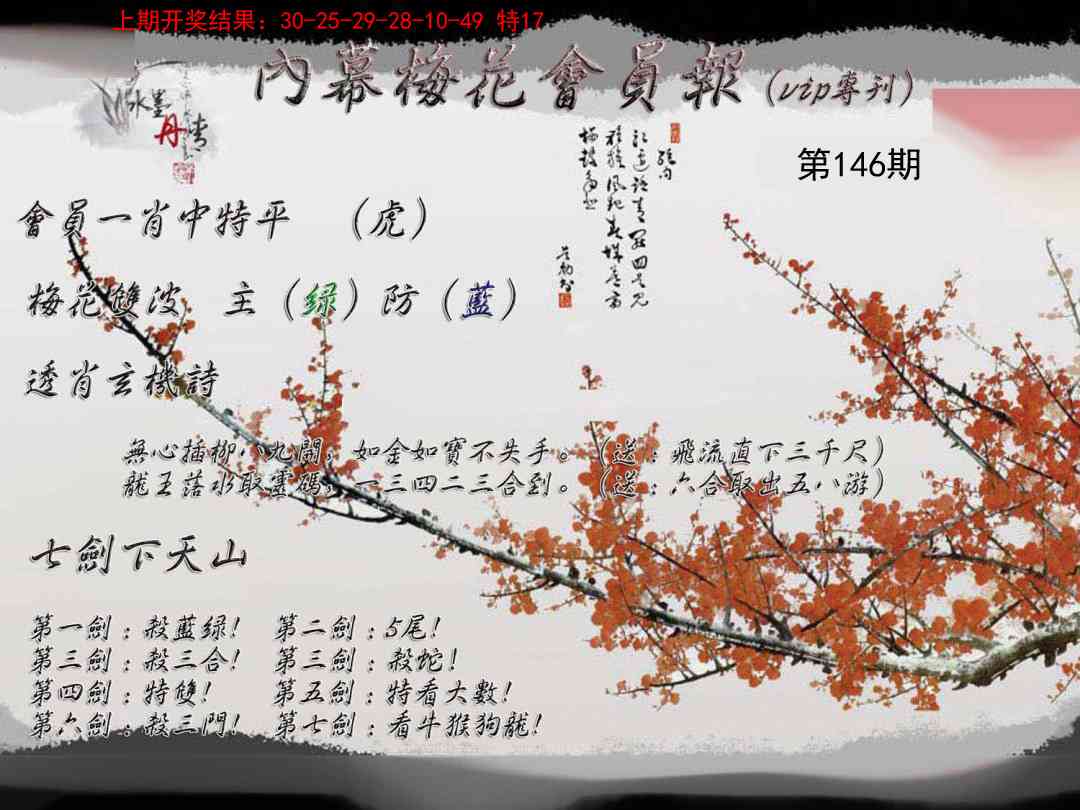 上期开奖结果：30-25-29-28-10-49 特17
內幕梅花會員報（vip專刊）
水墨丹青
第146期
會員一肖中特平　（虎）
梅花雙波　主（绿）防（藍）
透肖玄機詩
無心插柳八九開，如金如寶不失手。（送：飛流直下三千尺）
龍王落水取靈碼，一三四二三合到。（送：六合取出五八游）
七劍下天山
第一劍：殺藍绿！　第二劍：5尾！
第三劍：殺三合！　第三劍：殺蛇！
第四劍：特雙！　第五劍：特看大數！
第六劍：殺三門！　第七劍：看牛猴狗龍！